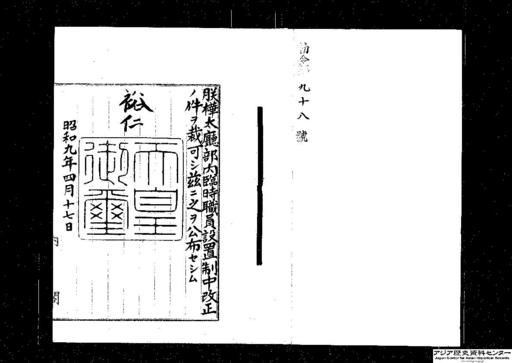 勅令第九十八號
朕樺太廳部内臨時職員設置制中改正
ノ件ヲ裁可シ茲ニ之ヲ公布セシム
裕仁
天皇御璽
昭和九年四月十七日
内閣
アジア歴史資料センター
Japan Center for Asian Historical Records